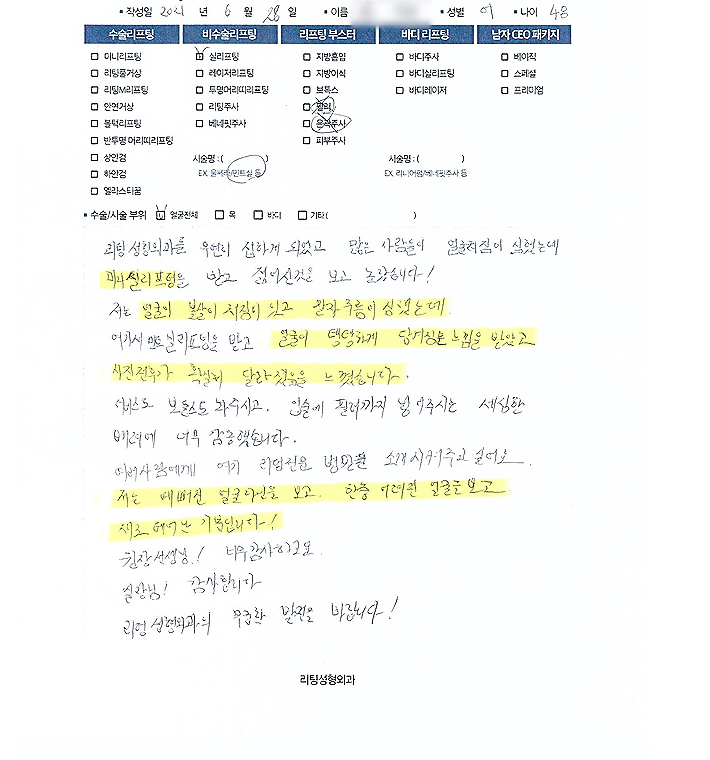 작성일 2021 년 6 월 28 일 이름 성별 여 나이 48
수술리프팅 비수술리프팅 리프팅 부스터 바디 리프팅 남자 CEO 패키지
미니리프팅 실리프팅 지방흡입 바디주사 베이직
리팅풀거상 레이저리프팅 지방이식 바디실리프팅 스페셜
리팅M리프팅 투명머리띠리프팅 보톡스 바디레이저 프리미엄
안면거상 리팅주사 필러
볼턱리프팅 베네핏주사 윤곽주사
반투명 머리띠리프팅 피부주사
상안검 시술명 : ( ) 시술명 : ( )
하안검 EX. 울쎄라/민트실 등 EX. 리니어펌/베네핏주사 등
엘라스티꿈
수술/시술 부위 얼굴전체 목 바디 기타 ( )
리팅성형외과를 우연히 접하게 되었고 많은 사람들이 얼굴처짐이 심했는데
실리프팅을 받고 젊어진것을 보고 놀랐습니다!
저는 얼굴이 볼살이 처짐이 있고 팔자 주름이 심했는데
여기서 민트실리프팅을 받고 얼굴이 탱탱하게 당겨지는 느낌을 받았고
사진전후가 확실히 달라졌음을 느꼈습니다.
서비스로 보톡스도 놔주시고. 입술에 필러까지 넣어주시는 세심한
배려에 너무 감동했습니다.
여기 리팅 병원을 소개시켜주고 싶어요.
저는 예뻐진 얼굴라인을 보고. 한층 어려진 얼굴을 보고
새로 태어난 기분입니다!
원장선생님! 너무감사하고요.
실장님! 감사합니다
리팅성형외과의 무궁한 발전을 바랍니다!
리팅성형외과